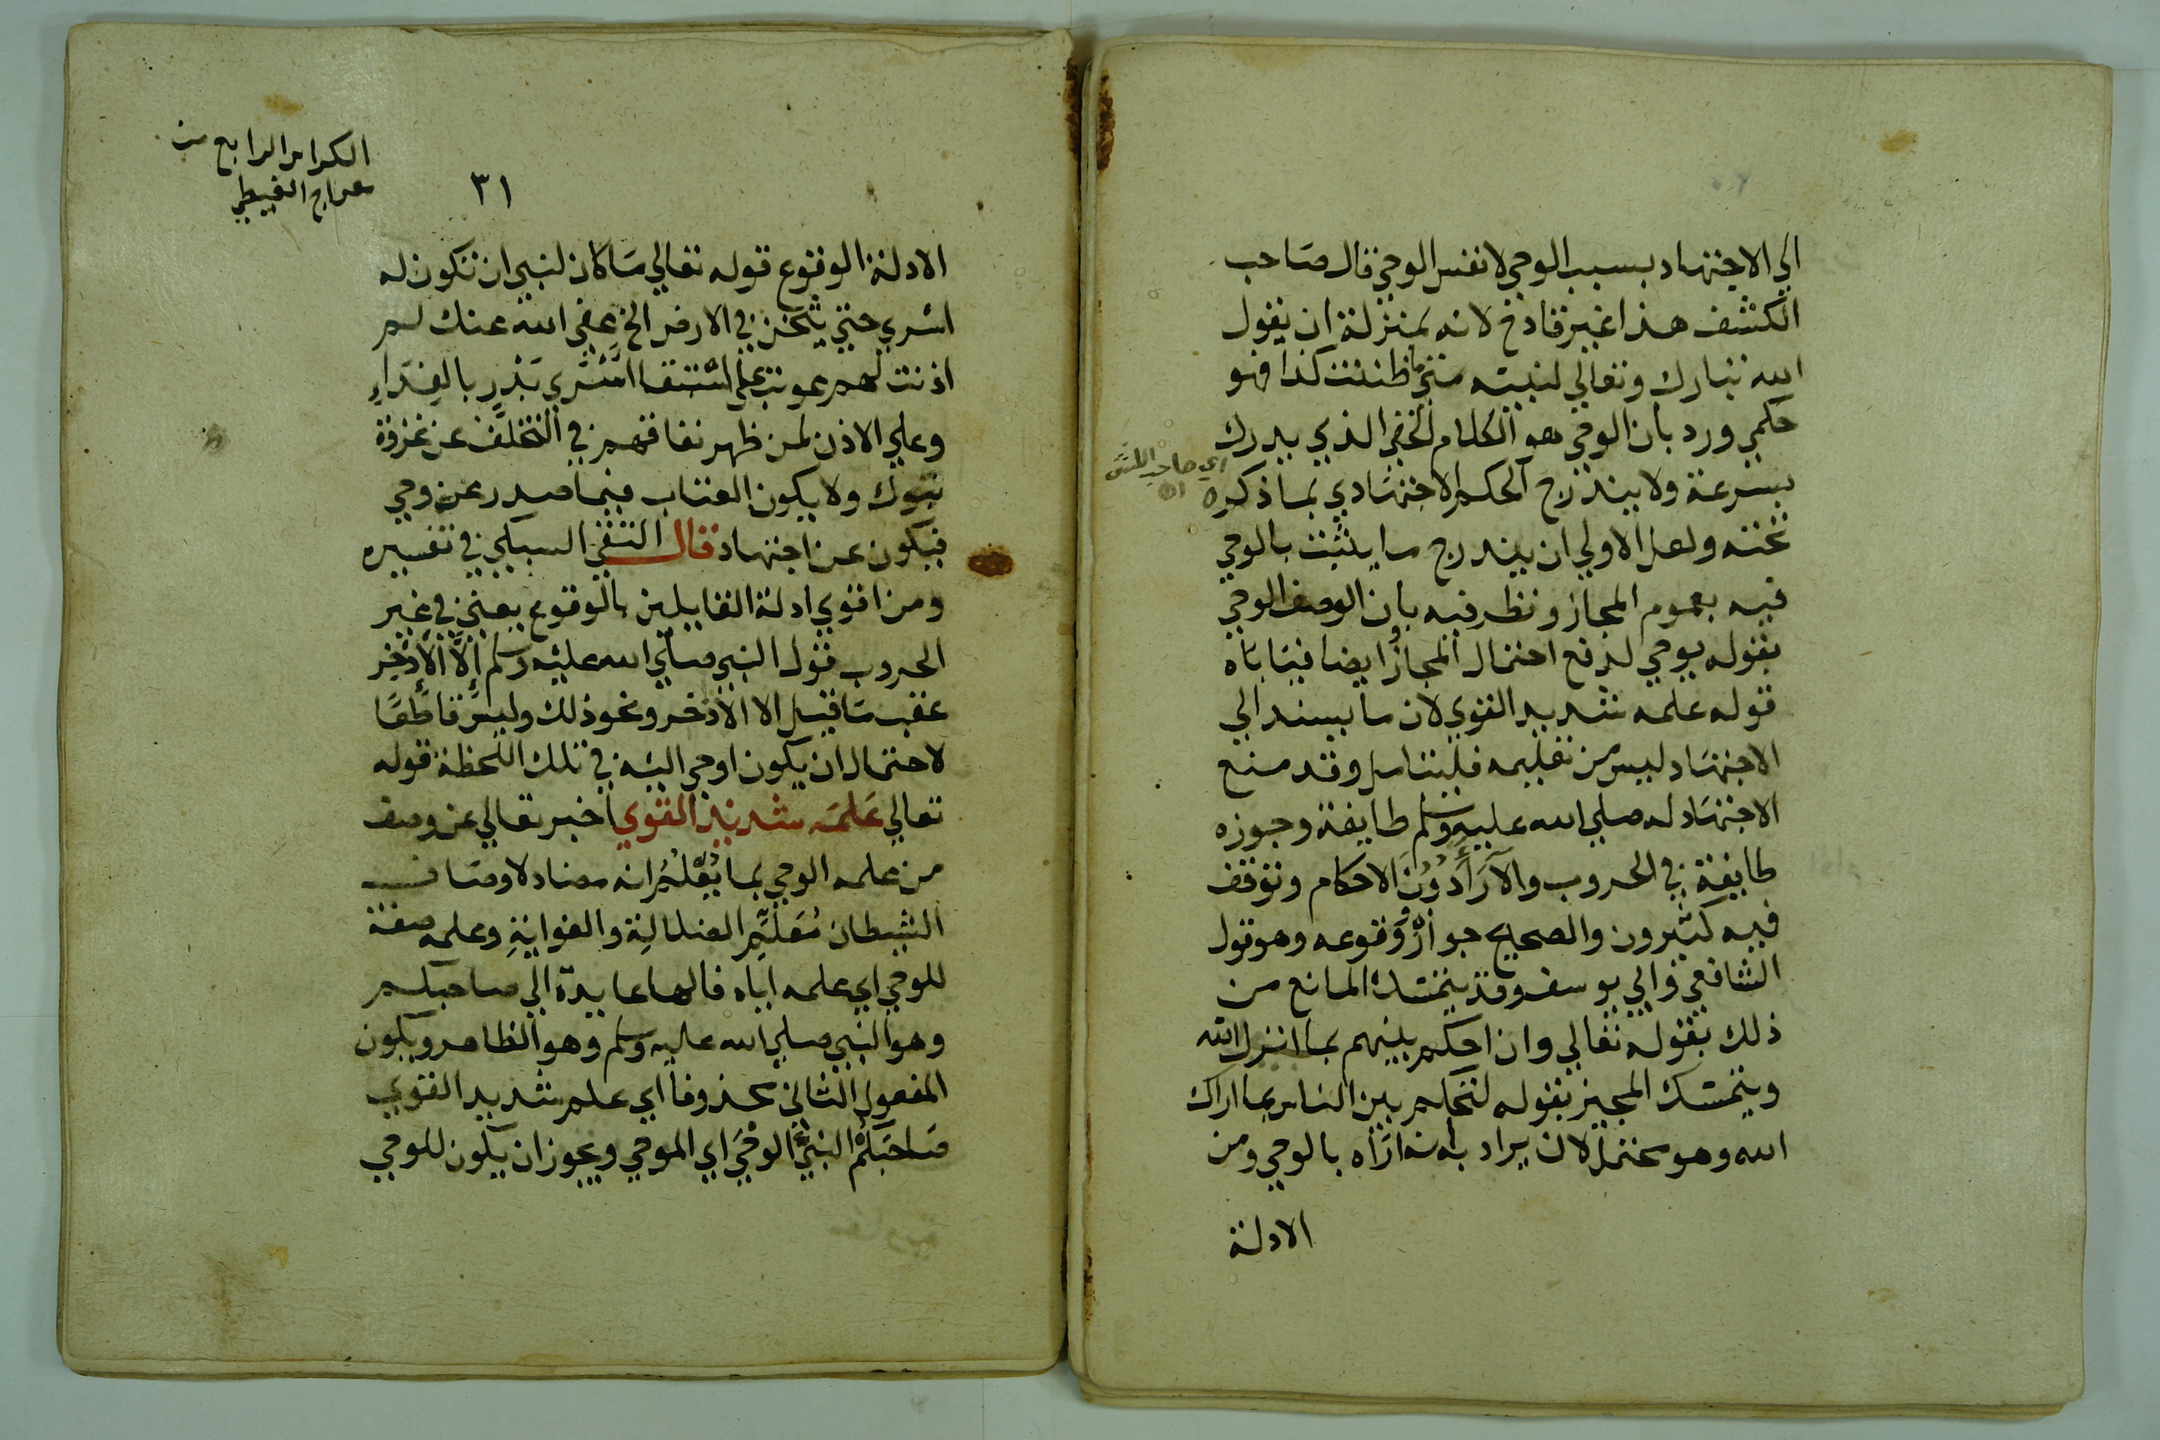 الي الاجتهاد بسبب الوحي لا نفس الوحي قال صاحب
الكشف هذا غير قادح لانه بمنزلة ان يقول
الله تبارك وتعالي لنبيه متي ما ظننت كذا فهو
حكمي ورد بان الوحي هو الكلام الخفي الذي يدرك
بسرعة ولا يندرج الحكم الاجتهادي بما ذكره
اي صاحب الكشف
تحته ولعل الاولي ان يندرج ما يثبت بالوحي
فيه بعموم المجاز ونظر فيه بان الوصف الوحي
بقوله يوحي لدفع احتمال المجاز ايضا فياباه
قوله علمه شديد القوي لان ما يسند الي
الاجتهاد ليس من تعليمه فليتامل وقد منع
الاجتهاد له صلي الله عليه وسلم طايفة وجوزه
طايفة في الحروب والآرآء دُونَ الاحكام وتوقف
فيه كثيرون والصحيح جوازه ووقوعه وهو قول
الشافعي وابي يوسف وقد يتمسك المانع من
ذلك بقوله تعالي وان احكم بينهم بما انزل الله
ويتمسك المجيز بقوله لتحكم بين الناس بما اراك
الله وهو محتمل لان يراد به ما اراه بالوحي ومن
الادلة
الكراس الرابع من
معراج الغيطي
٣١
الادلة الوقوع قوله تعالي ما كان لنبي ان تكون له
اسري حتي يثخن في الارض الخ عفي الله عنك لم
اذنت لهم عوتب علي استبقا اسْري بَدْرٍ بالفِدَاءِ
وعلي الاذن لمن ظهر نفاقهم في التخلف عن غزوة
تبوك ولا يكون العتاب فيما صدر عن وحي
فيكون عن اجتهاد قال التقي السبكي في تفسيره
ومن اقوي ادلة القايلين بالوقوع يعني في غير
الحروب قول النبي صلي الله عليه وسلم إلَّا الْأذْخِر
عقب ما قيل الا الأذخر ونحو ذلك وليس قاطعًا
لاحتمال ان يكون اوحي اليه في تلك اللحظة قوله
تعالي عَلمَه شديد القوي اخبر تعالي عن وصف
من علمه الوحي بما يُعْلَمُ انه مضاد لاوصاف
الشيطان مُعَلِّمِ الضلالةِ والغوايةِ وعلمه صفة
للوحي اي علمه اياه فالها عايدة الي صاحبكم
وهو النبي صلي الله عليه وسلم وهو الظاهر ويكون
المفعول الثاني محذوفا اي علم شديد القوي
صَاحِبَكُمُ النبيَّ الوحْيَ اي الموحي ويجوز ان يكون للوحي